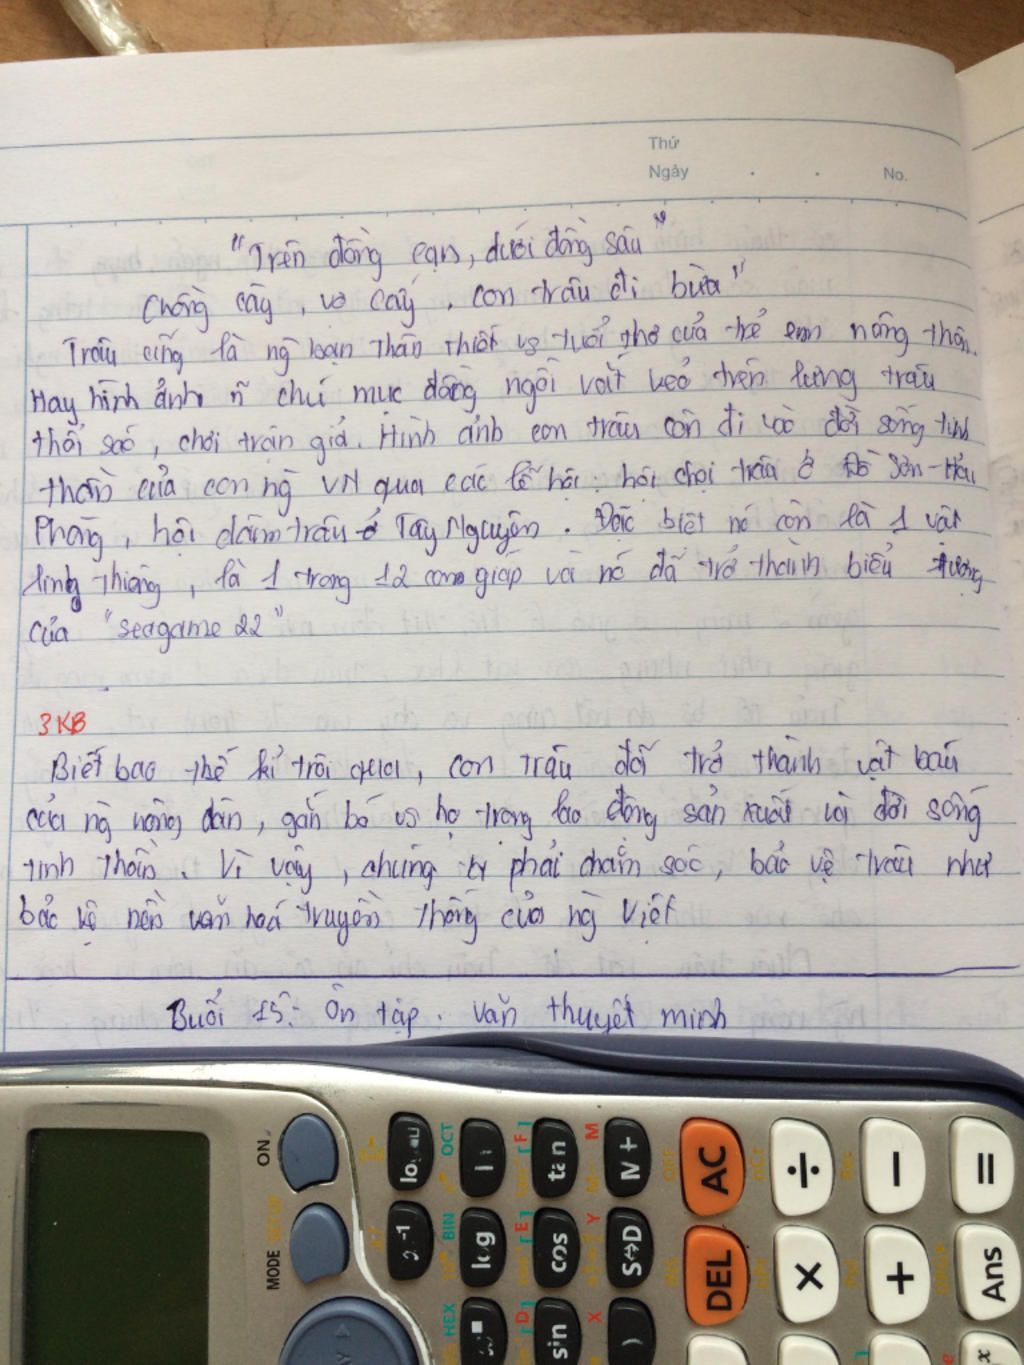 Thứ
Ngày . . No.
"Trên đồng cạn, dưới đồng sâu"
Chồng cày, vợ cấy, con trâu đi bừa"
Trâu cũng là ng bạn thân thiết vs tuổi thơ của trẻ em nông thôn.
Hay hình ảnh n~ chú mục đồng ngồi vắt vẻo trên lưng trâu
thổi sáo, chơi trận giả. Hình ảnh con trâu còn đi vào đời sống tinh
thần của con ng VN qua các lễ hội: hội chọi trâu ở Đồ Sơn - Hải
Phòng, hội đâm trâu ở Tây Nguyên. Đặc biệt nó còn là 1 vật
linh thiêng, là 1 trong 12 con giáp và nó đã trở thành biểu tượng
của "seagame 22"
3 KB
Biết bao thế kỉ trôi qua, con trâu đã trở thành vật báu
của ng nông dân, gắn bó vs họ trong lao động sản xuất và đời sống
tinh thần. Vì vậy, chúng ta phải chăm sóc, bảo vệ trâu như
bảo vệ nền văn hoá truyền thống của ng Việt
Buổi 15: Ôn tập. Văn thuyết minh
ON OCT [F] M
tan M+ AC ÷ − =
MODE SETUP BIN [E] Y
log cos S⇔D DEL × + Ans
HEX [D] X
sin )